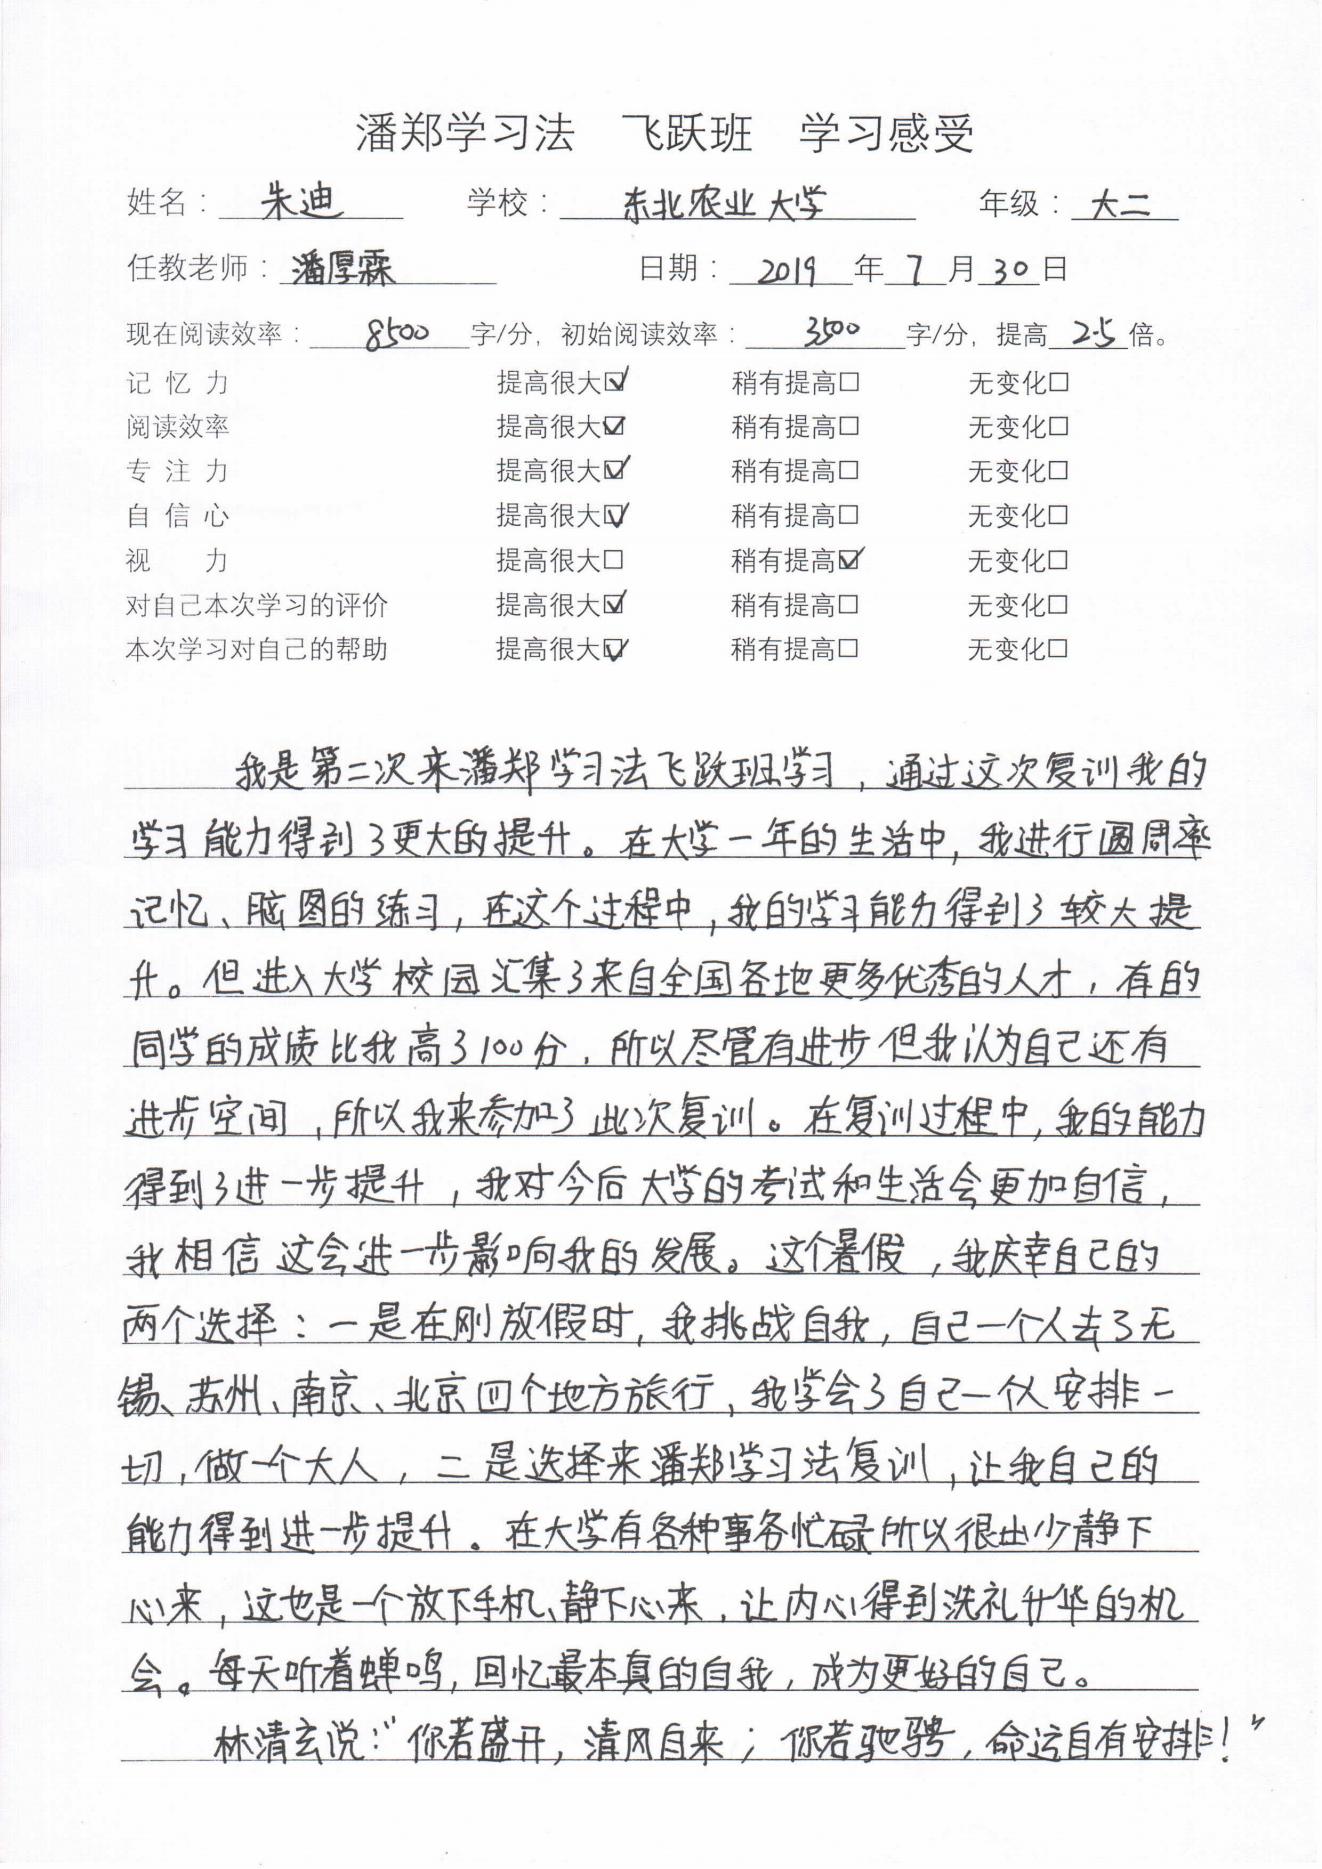 潘郑学习法 飞跃班 学习感受
姓名：朱迪 学校：东北农业大学 年级：大二
任教老师：潘厚霖 日期：2019年7月30日
现在阅读效率：8500字/分，初始阅读效率：3500字/分，提高2.5倍。
记忆力 提高很大☑ 稍有提高□ 无变化□
阅读效率 提高很大☑ 稍有提高□ 无变化□
专注力 提高很大☑ 稍有提高□ 无变化□
自信心 提高很大☑ 稍有提高□ 无变化□
视力 提高很大□ 稍有提高☑ 无变化□
对自己本次学习的评价 提高很大☑ 稍有提高□ 无变化□
本次学习对自己的帮助 提高很大☑ 稍有提高□ 无变化□
我是第二次来潘郑学习法飞跃班学习，通过这次复训我的
学习能力得到了更大的提升。在大学一年的生活中，我进行圆周率
记忆、脑图的练习，在这个过程中，我的学习能力得到了较大提
升。但进入大学校园汇集了来自全国各地更多优秀的人才，有的
同学的成绩比我高了100分，所以尽管有进步但我认为自己还有
进步空间，所以我来参加了此次复训。在复训过程中，我的能力
得到了进一步提升，我对今后大学的考试和生活会更加自信，
我相信这会进一步影响我的发展。这个暑假，我庆幸自己的
两个选择：一是在刚放假时，我挑战自我，自己一个人去了无
锡、苏州、南京、北京四个地方旅行，我学会了自己一个人安排一
切，做一个大人，二是选择来潘郑学习法复训，让我自己的
能力得到进一步提升。在大学有各种事务忙碌所以很少静下
心来，这也是一个放下手机、静下心来，让内心得到洗礼升华的机
会。每天听着蝉鸣，回忆最本真的自我，成为更好的自己。
林清玄说：“你若盛开，清风自来；你若驰骋，命运自有安排！”